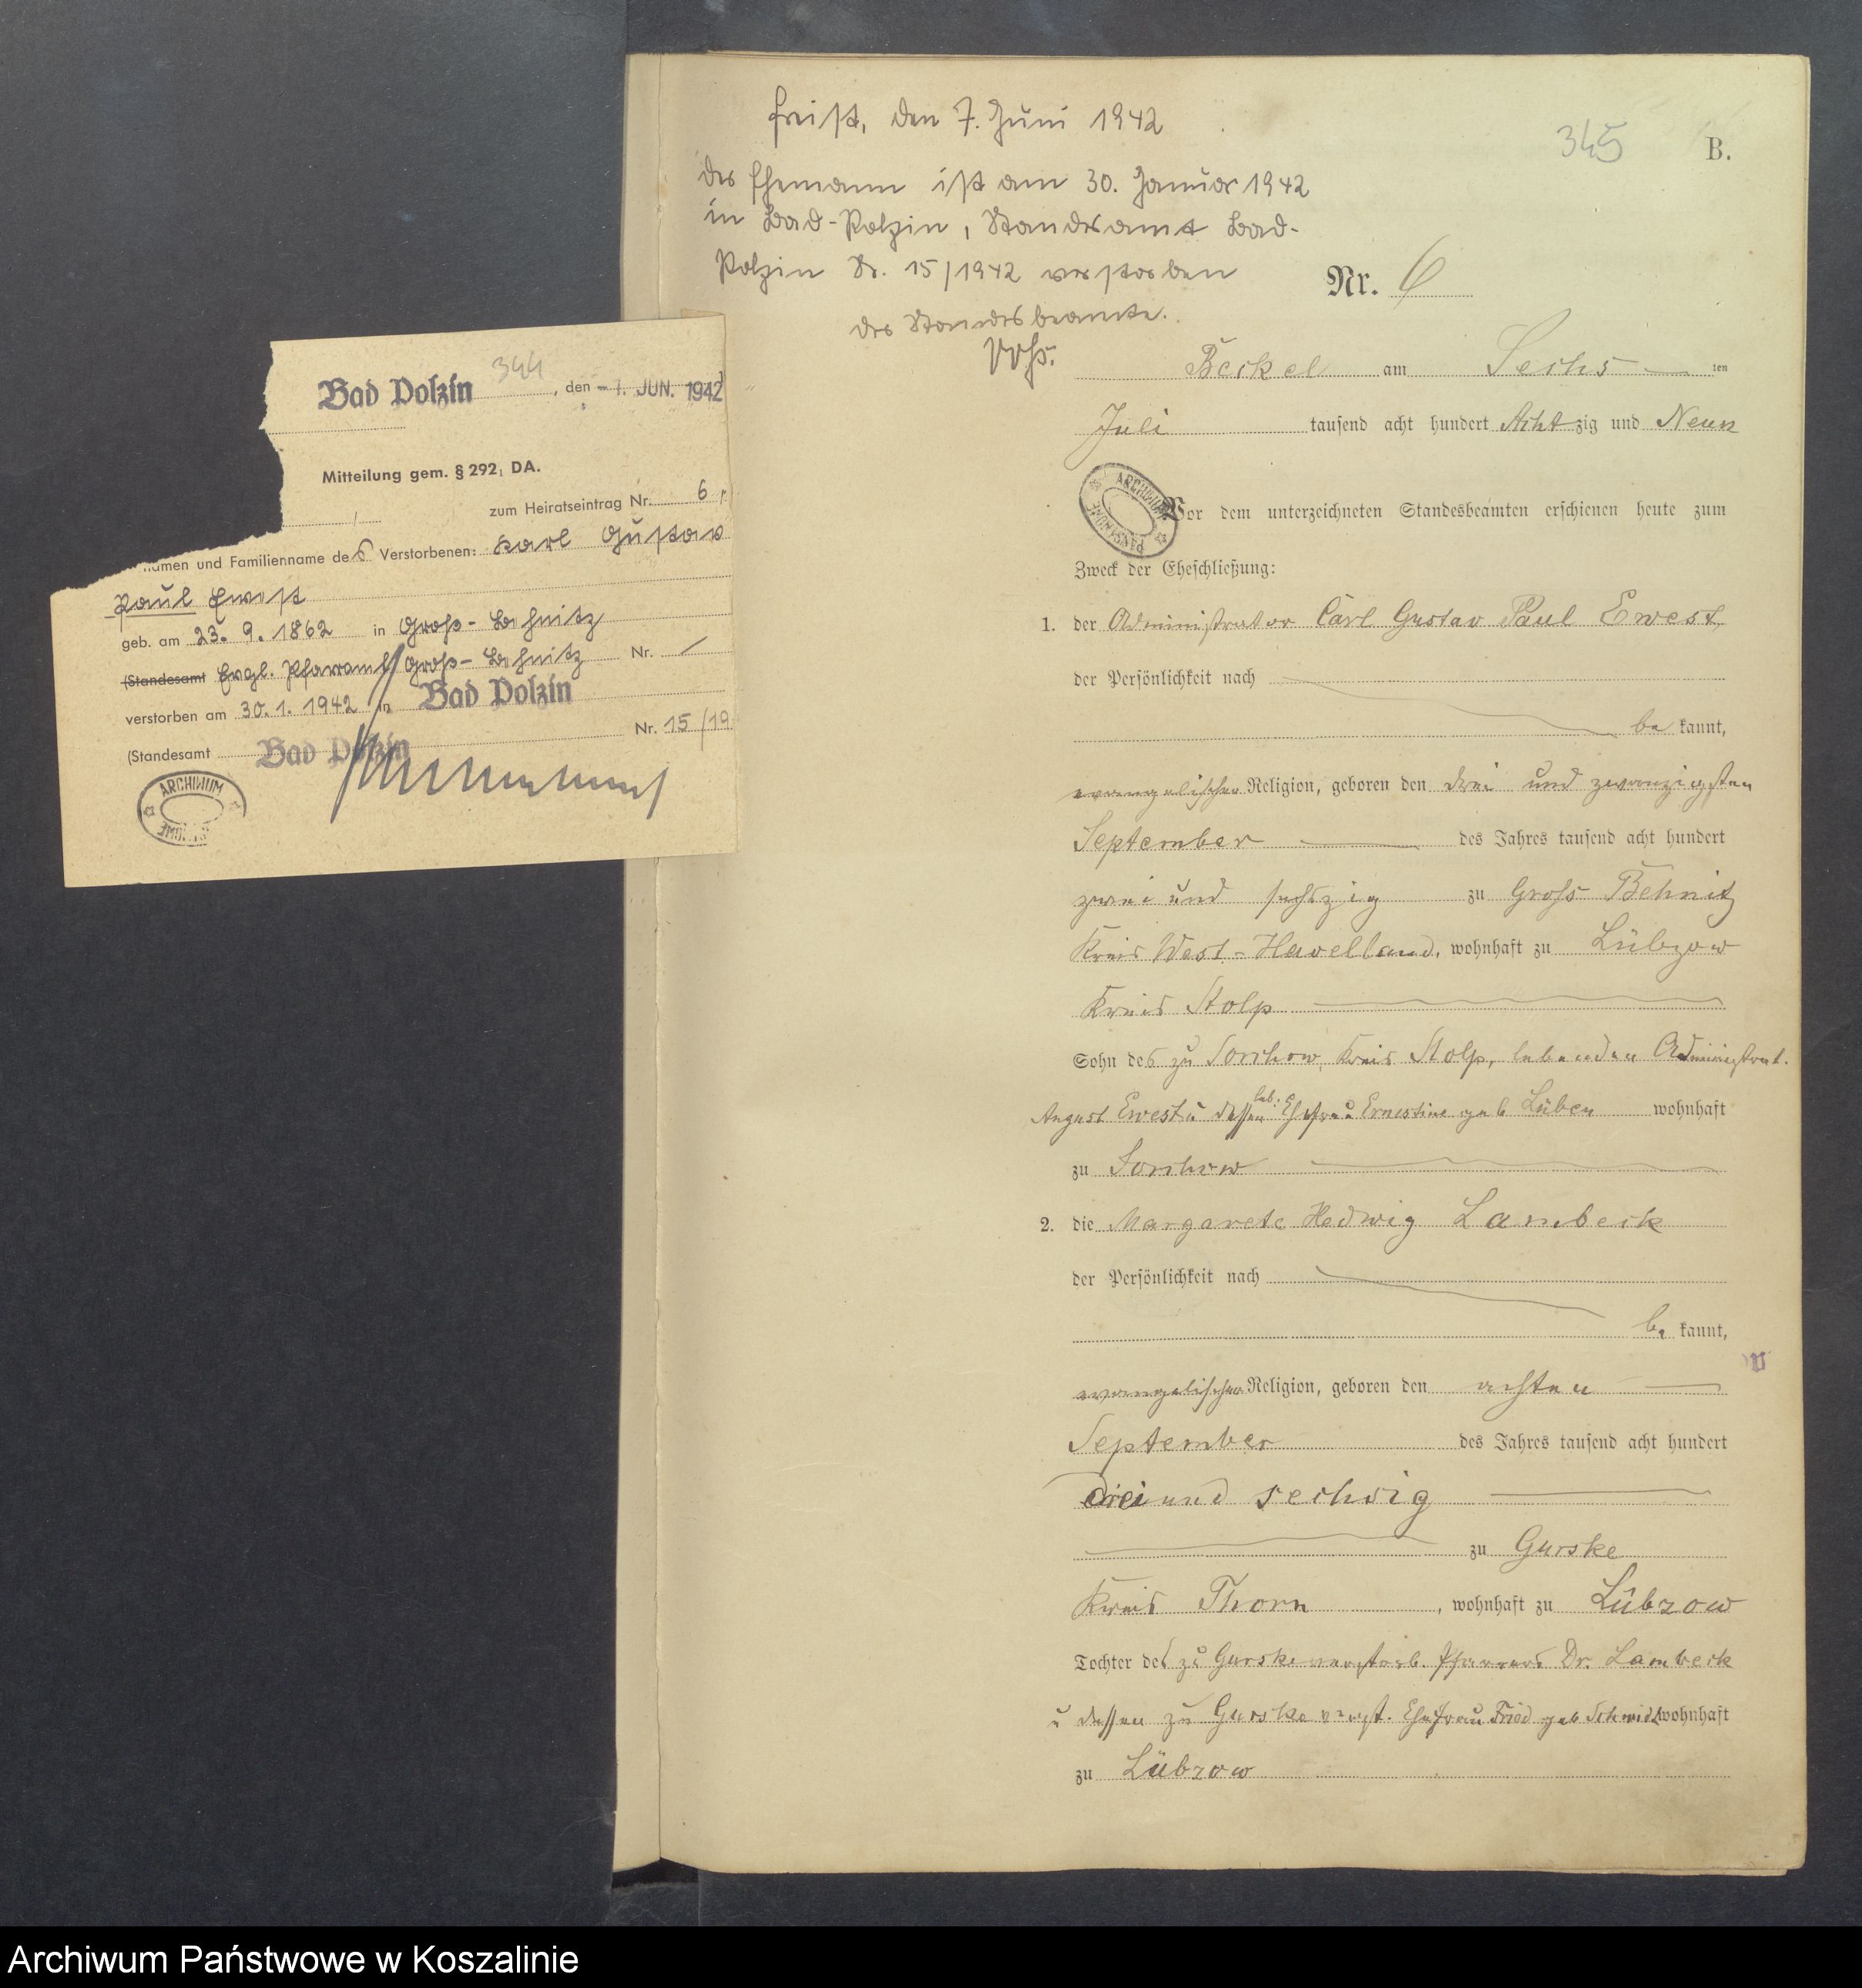 Freist, den 7. Juni 1942
der Ehemann ist am 30. Januar 1942
in Bad-Polzin, Standesamt Bad-
Polzin Nr. 15/1942 verstorben
der Standesbeamte.
345
B.
Nr. 6
Beckel am Sechs ten
Juli tausend acht hundert Achtzig und Neun
ARCHIWUM
Vor dem unterzeichneten Standesbeamten erschienen heute zum
Zweck der Eheschließung:
1. der Administrator Carl Gustav Paul Ewest
der Persönlichkeit nach
be kannt,
evangelischer Religion, geboren den drei und zwanzigsten
September des Jahres tausend acht hundert
zwei und sechszig zu Gross Behnitz
Kreis West-Havelland, wohnhaft zu Lübzow
Kreis Stolp
Sohn des zu Sorchow, Kreis Stolp, lebenden Administrat.
August Ewest u dessen leb. Ehefrau Ernestine geb Lüben wohnhaft
zu Sorchow
2. die Margarete Hedwig Lambeck
der Persönlichkeit nach
be kannt,
evangelischer Religion, geboren den achten
September des Jahres tausend acht hundert
drei und sechsig
zu Gurske
Kreis Thorn, wohnhaft zu Lübzow
Tochter des zu Gurske verstorb. Pfarrers Dr. Lambeck
u dessen zu Gurske verst. Ehefrau Fried geb Schmidt wohnhaft
zu Lübzow
344
Bad Polzin, den -1. JUN. 1942
Mitteilung gem. § 292, DA.
zum Heiratseintrag Nr. 6
namen und Familienname des Verstorbenen: Karl Gustav
Paul Ewest
geb. am 23. 9. 1862 in Groß-Behnitz
(Standesamt Evgl. Pfarramt Groß-Behnitz Nr. /
verstorben am 30. 1. 1942 in Bad Polzin
(Standesamt Bad Polzin Nr. 15/19
ARCHIWUM
Archiwum Państwowe w Koszalinie